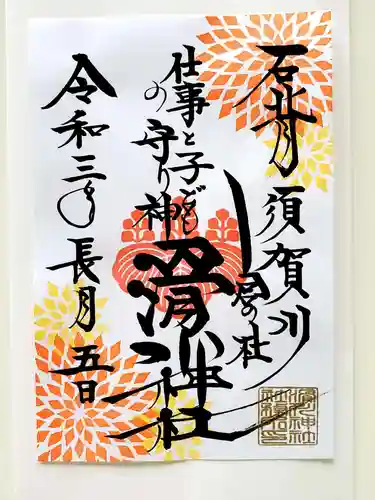 石背
須賀川
の社
仕事と子ども
の守り神
滑川神社
令和三年長月五日